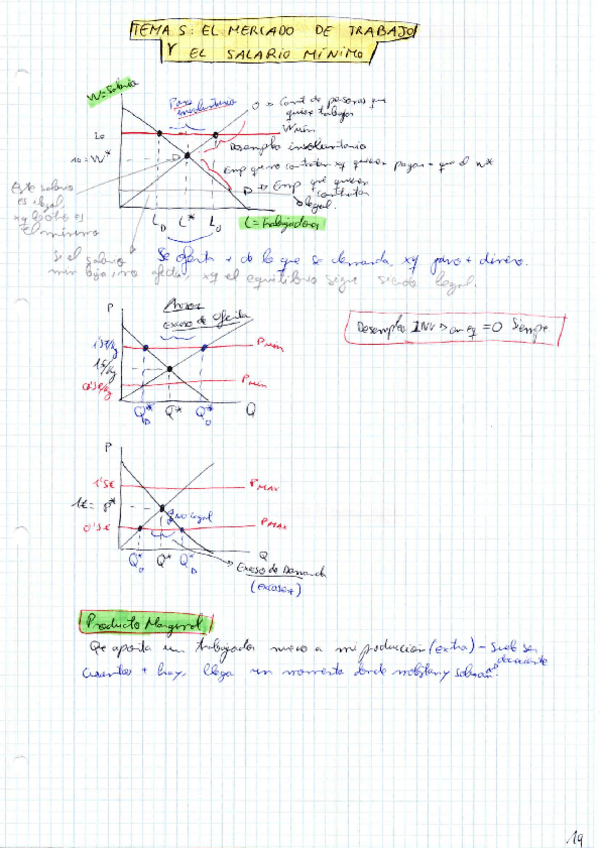 TEMA 5: EL MERCADO DE TRABAJO
Y EL SALARIO MÍNIMO
W=Salario
Paro
involuntario
O → Cant de personas que
quieren trabajar
Wmin
Desempleo involuntario
10=W*
Emp que no contratan xq quieren pagar - que el W*
D → Emp que quieren
contratar
legal
Este salario
es ilegal,
xq es el
mínimo
LD L* LO
L=trabajadores
Se oferta + de lo que se demanda, xq paro + dinero.
Si el salario
min baja, no afecta, xq el equilibrio sigue siendo legal.
P
Exceso de oferta
1'5€/kg
Pmin
1€/kg
0'5€/kg
Pmin
QD* Q* QO* Q
Desempleo INV → en eq = 0 Siempre
P
1'5€
PMAX
1€=P*
0'5€
PMAX
QO* Q* QD* Q
Exceso de Demanda
(escasez)
Producto Marginal
Qe aporta un trabajador nuevo a mi producción (extra) - Suele ser
decreciente
Cuantos + hay, llega un momento donde molestan y sobran.
19